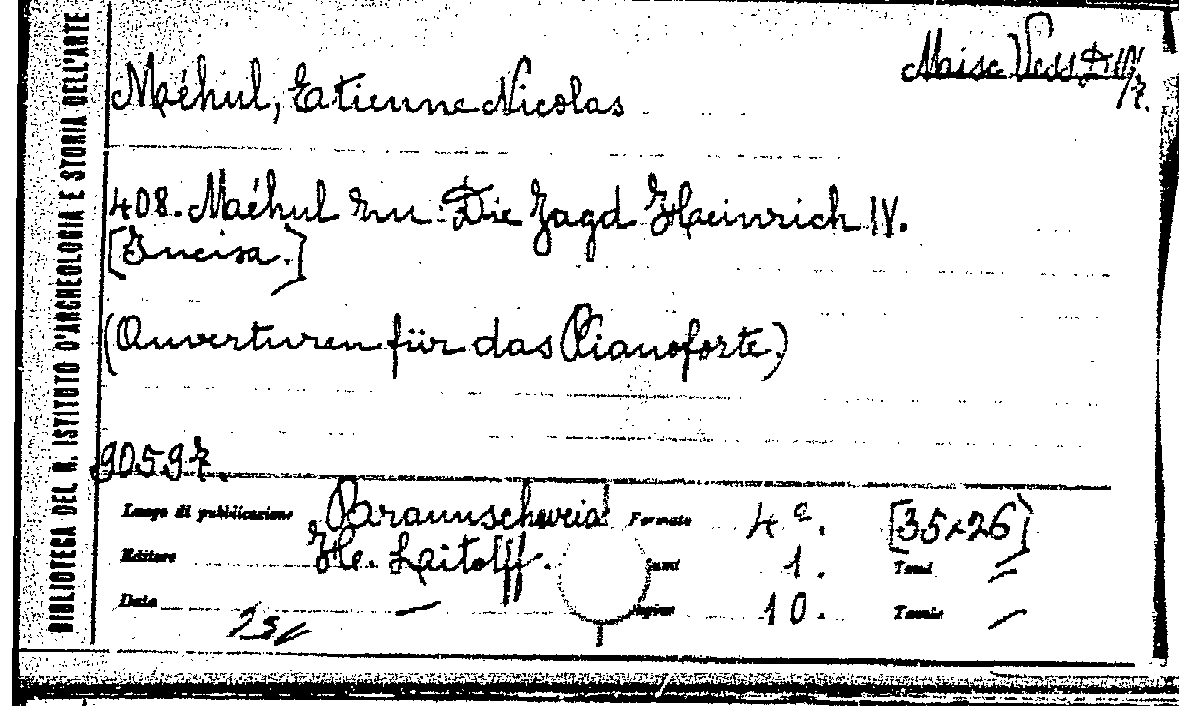 BIBLIOTECA DEL R. ISTITUTO D'ARCHEOLOGIA E STORIA DELL'ARTE
Méhul, Etienne Nicolas
408. Méhul zu: Die Jagd Heinrich IV.
[Incisa.]
(Ouverturen für das Pianoforte.)
90597.
Luogo di pubblicazione Braunschweig Formato 4º. [35x26]
Editore He. Laitolff. 1. Tomi —
Data — Pagine 10. Tavole —